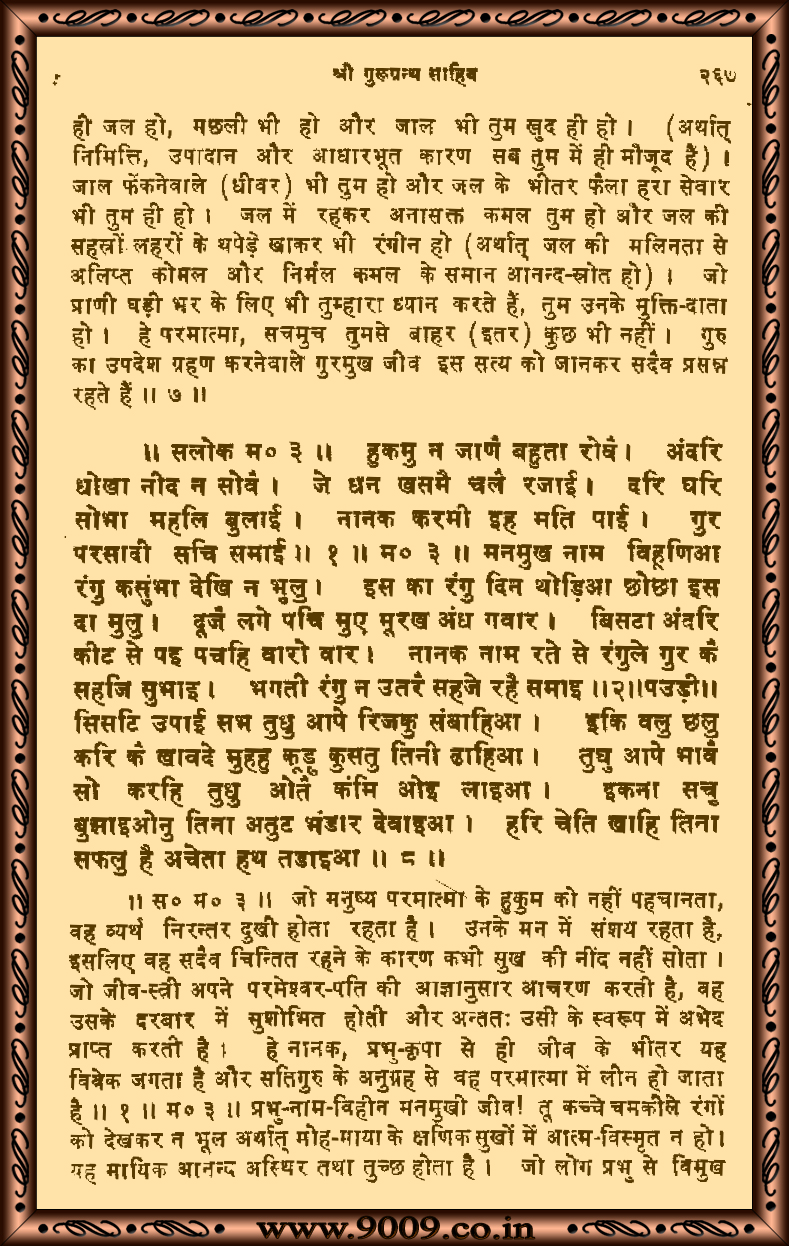 श्री गुरूग्रन्थ साहिब २६७
ही जल हो, मछली भी हो और जाल भी तुम खुद ही हो । (अर्थात्
निमित्ति, उपादान और आधारभूत कारण सब तुम में ही मौजूद हैं) ।
जाल फेंकनेवाले (धीवर) भी तुम हो और जल के भीतर फैला हरा सेवार
भी तुम ही हो । जल में रहकर अनासक्त कमल तुम हो और जल की
सहस्रों लहरों के थपेड़े खाकर भी रंगीन हो (अर्थात् जल की मलिनता से
अलिप्त कोमल और निर्मल कमल के समान आनन्द-स्रोत हो) । जो
प्राणी घड़ी भर के लिए भी तुम्हारा ध्यान करते हैं, तुम उनके मुक्ति-दाता
हो । हे परमात्मा, सचमुच तुमसे बाहर (इतर) कुछ भी नहीं । गुरु
का उपदेश ग्रहण करनेवाले गुरमुख जीव इस सत्य को जानकर सदैव प्रसन्न
रहते हैं ॥ ७ ॥
॥ सलोक म० ३ ॥ हुकमु न जाणै बहुता रोवै । अंदरि
धोखा नीद न सोवै । जे धन खसमै चलै रजाई । दरि घरि
सोभा महलि बुलाई । नानक करमी इह मति पाई । गुर
परसादी सचि समाई ॥ १ ॥ म० ३ ॥ मनमुख नाम विहूणिआ
रंगु कसुंभा देखि न भुलु । इस का रंगु दिन थोड़िआ छोछा इस
दा मुलु । दूजै लगे पचि मुए मूरख अंध गवार । बिसटा अंदरि
कीट से पइ पचहि वारो वार । नानक नाम रते से रंगुले गुर कै
सहजि सुभाइ । भगती रंगु न उतरै सहजे रहै समाइ ॥२॥पउड़ी॥
सिसटि उपाई सभ तुधु आपे रिजकु संबाहिआ । इकि वलु छलु
करि कै खावदे मुहहु कूड़ु कुसतु तिनी ढाहिआ । तुधु आपे भावै
सो करहि तुधु ओतै कंमि ओइ लाइआ । इकना सचु
बुझाइओनु तिना अतुट भंडार देवाइआ । हरि चेति खाहि तिना
सफलु है अचेता हथ तडाइआ ॥ ८ ॥
॥ स० म० ३ ॥ जो मनुष्य परमात्मा के हुकुम को नहीं पहचानता,
वह व्यर्थ निरन्तर दुखी होता रहता है । उनके मन में संशय रहता है,
इसलिए वह सदैव चिन्तित रहने के कारण कभी सुख की नींद नहीं सोता ।
जो जीव-स्त्री अपने परमेश्वर-पति की आज्ञानुसार आचरण करती है, वह
उसके दरबार में सुशोभित होती और अन्ततः उसी के स्वरूप में अभेद
प्राप्त करती है । हे नानक, प्रभु-कृपा से ही जीव के भीतर यह
विबेक जगता है और सतिगुरु के अनुग्रह से वह परमात्मा में लीन हो जाता
है ॥ १ ॥ म० ३ ॥ प्रभु-नाम-विहीन मनमुखी जीव! तू कच्चे चमकीले रंगों
को देखकर न भूल अर्थात् मोह-माया के क्षणिक सुखों में आत्म-विस्मृत न हो।
यह मायिक आनन्द अस्थिर तथा तुच्छ होता है । जो लोग प्रभु से विमुख
www.9009.co.in